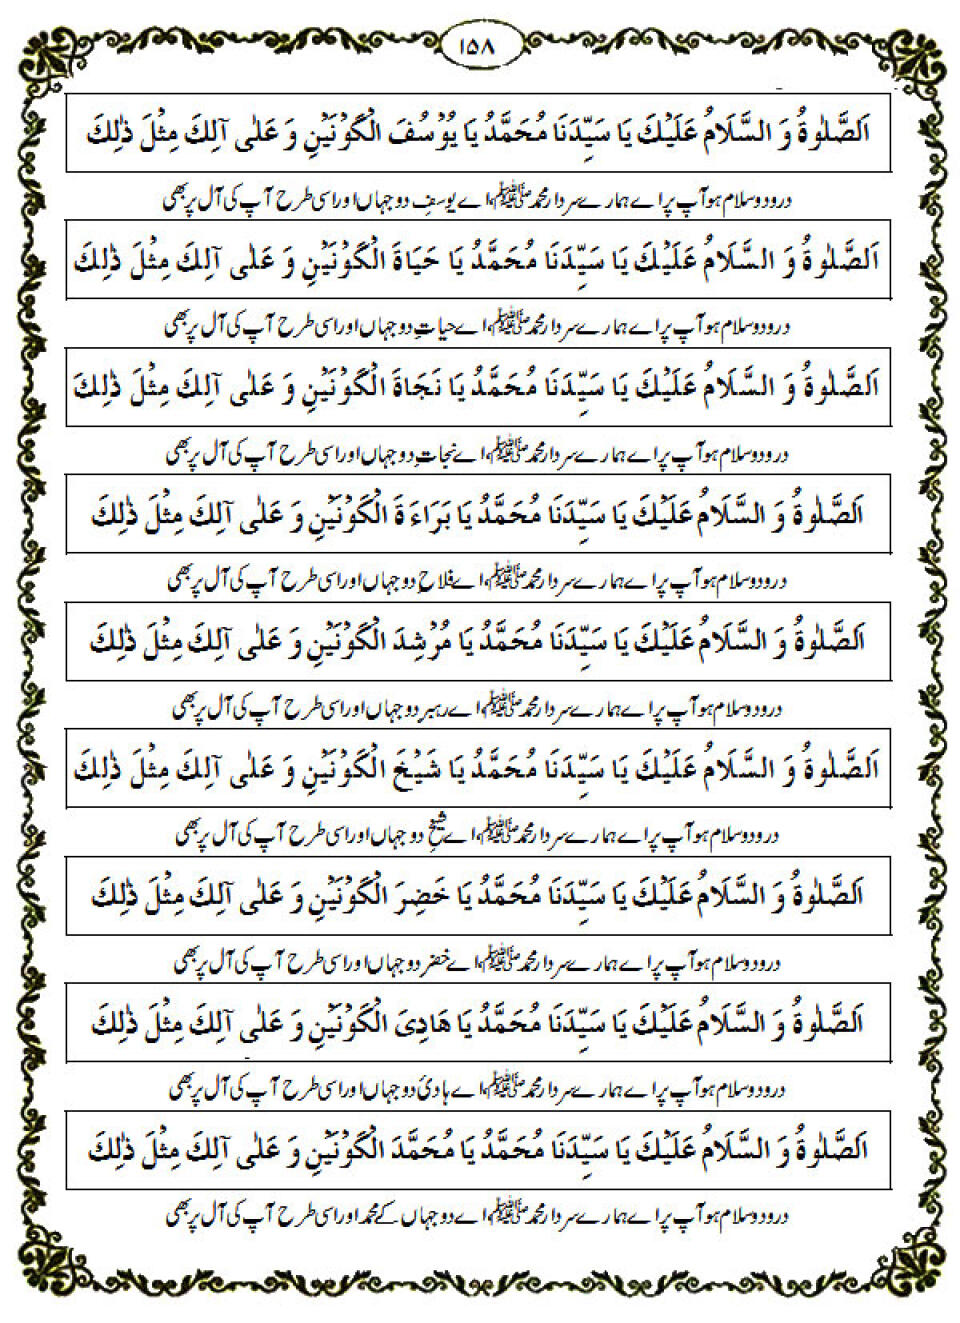 ۱۵۸
اَلصَّلٰوةُ وَ السَّلَامُ عَلَيْكَ يَا سَيِّدَنَا مُحَمَّدُ يَا يُوْسُفَ الْكَوْنَيْنِ وَ عَلٰى آلِكَ مِثْلَ ذٰلِكَ
درود و سلام ہو آپ پر اے ہمارے سردار محمد ﷺ، اے یوسفِ دو جہاں اور اسی طرح آپ کی آل پر بھی
اَلصَّلٰوةُ وَ السَّلَامُ عَلَيْكَ يَا سَيِّدَنَا مُحَمَّدُ يَا حَيَاةَ الْكَوْنَيْنِ وَ عَلٰى آلِكَ مِثْلَ ذٰلِكَ
درود و سلام ہو آپ پر اے ہمارے سردار محمد ﷺ، اے حیاتِ دو جہاں اور اسی طرح آپ کی آل پر بھی
اَلصَّلٰوةُ وَ السَّلَامُ عَلَيْكَ يَا سَيِّدَنَا مُحَمَّدُ يَا نَجَاةَ الْكَوْنَيْنِ وَ عَلٰى آلِكَ مِثْلَ ذٰلِكَ
درود و سلام ہو آپ پر اے ہمارے سردار محمد ﷺ، اے نجاتِ دو جہاں اور اسی طرح آپ کی آل پر بھی
اَلصَّلٰوةُ وَ السَّلَامُ عَلَيْكَ يَا سَيِّدَنَا مُحَمَّدُ يَا بَرَاءَةَ الْكَوْنَيْنِ وَ عَلٰى آلِكَ مِثْلَ ذٰلِكَ
درود و سلام ہو آپ پر اے ہمارے سردار محمد ﷺ، اے فلاحِ دو جہاں اور اسی طرح آپ کی آل پر بھی
اَلصَّلٰوةُ وَ السَّلَامُ عَلَيْكَ يَا سَيِّدَنَا مُحَمَّدُ يَا مُرْشِدَ الْكَوْنَيْنِ وَ عَلٰى آلِكَ مِثْلَ ذٰلِكَ
درود و سلام ہو آپ پر اے ہمارے سردار محمد ﷺ، اے رہبر دو جہاں اور اسی طرح آپ کی آل پر بھی
اَلصَّلٰوةُ وَ السَّلَامُ عَلَيْكَ يَا سَيِّدَنَا مُحَمَّدُ يَا شَيْخَ الْكَوْنَيْنِ وَ عَلٰى آلِكَ مِثْلَ ذٰلِكَ
درود و سلام ہو آپ پر اے ہمارے سردار محمد ﷺ، اے شیخِ دو جہاں اور اسی طرح آپ کی آل پر بھی
اَلصَّلٰوةُ وَ السَّلَامُ عَلَيْكَ يَا سَيِّدَنَا مُحَمَّدُ يَا خَضِرَ الْكَوْنَيْنِ وَ عَلٰى آلِكَ مِثْلَ ذٰلِكَ
درود و سلام ہو آپ پر اے ہمارے سردار محمد ﷺ، اے خضر دو جہاں اور اسی طرح آپ کی آل پر بھی
اَلصَّلٰوةُ وَ السَّلَامُ عَلَيْكَ يَا سَيِّدَنَا مُحَمَّدُ يَا هَادِىَ الْكَوْنَيْنِ وَ عَلٰى آلِكَ مِثْلَ ذٰلِكَ
درود و سلام ہو آپ پر اے ہمارے سردار محمد ﷺ، اے ہادئ دو جہاں اور اسی طرح آپ کی آل پر بھی
اَلصَّلٰوةُ وَ السَّلَامُ عَلَيْكَ يَا سَيِّدَنَا مُحَمَّدُ يَا مُحَمَّدَ الْكَوْنَيْنِ وَ عَلٰى آلِكَ مِثْلَ ذٰلِكَ
درود و سلام ہو آپ پر اے ہمارے سردار محمد ﷺ، اے دو جہاں کے محمد اور اسی طرح آپ کی آل پر بھی